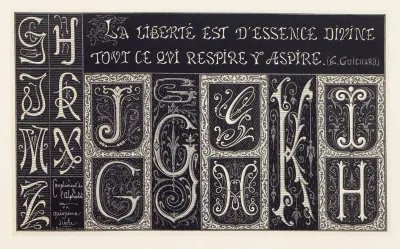 LA LIBERTÉ EST D'ESSENCE DIVINE
TOUT CE QUI RESPIRE Y ASPIRE. (E. GUICHARD)
G H
J K
M X
Z
Complément de
l'Alphabet
quinzième
siècle
J G G K I
G H H